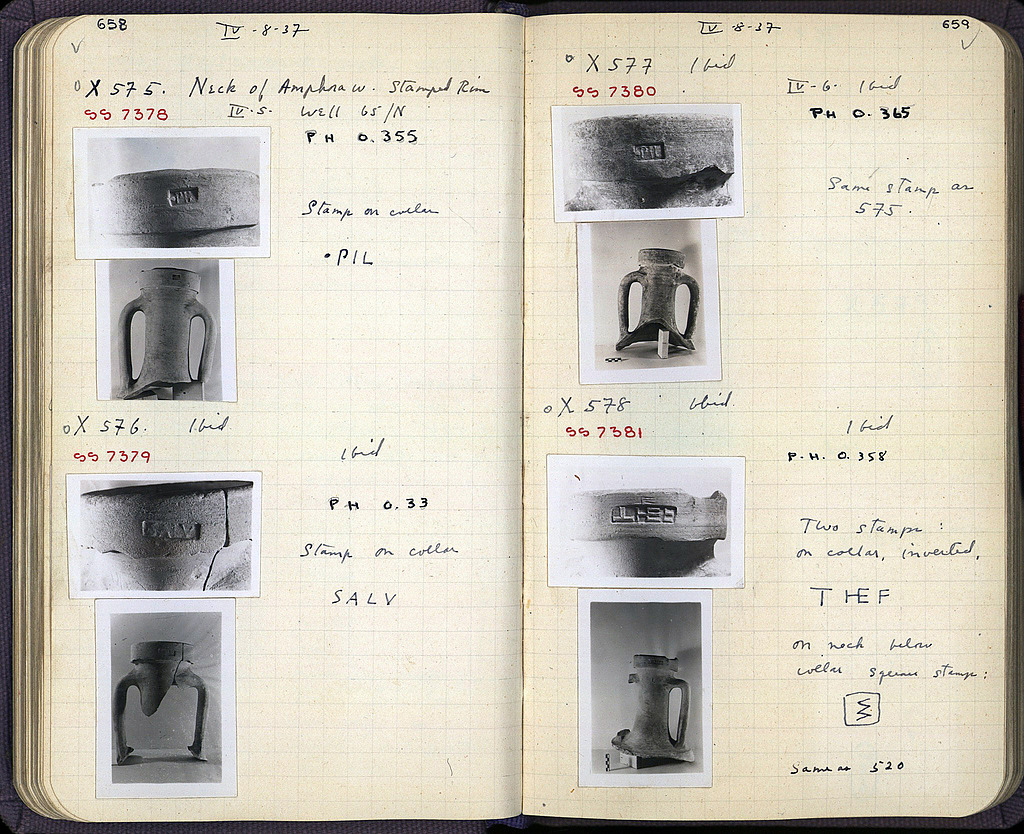 658
IV-8-37
X 575. Neck of Amphra w. Stamped Rim
SS 7378 IV-5- Well 65/N
PH 0.355
PIL
Stamp on collar
•PIL
X 576. Ibid
SS 7379
Ibid
PH 0.33
SALV
Stamp on collar
SALV
659
IV-8-37
X 577 Ibid
SS 7380 IV-6- Ibid
PH 0.365
PIL
Same stamp as
575.
X 578 Ibid.
SS 7381
Ibid
P.H. 0.358
Two stamps:
on collar, inverted,
THEF
on neck below
collar square stamp:
Same as 520